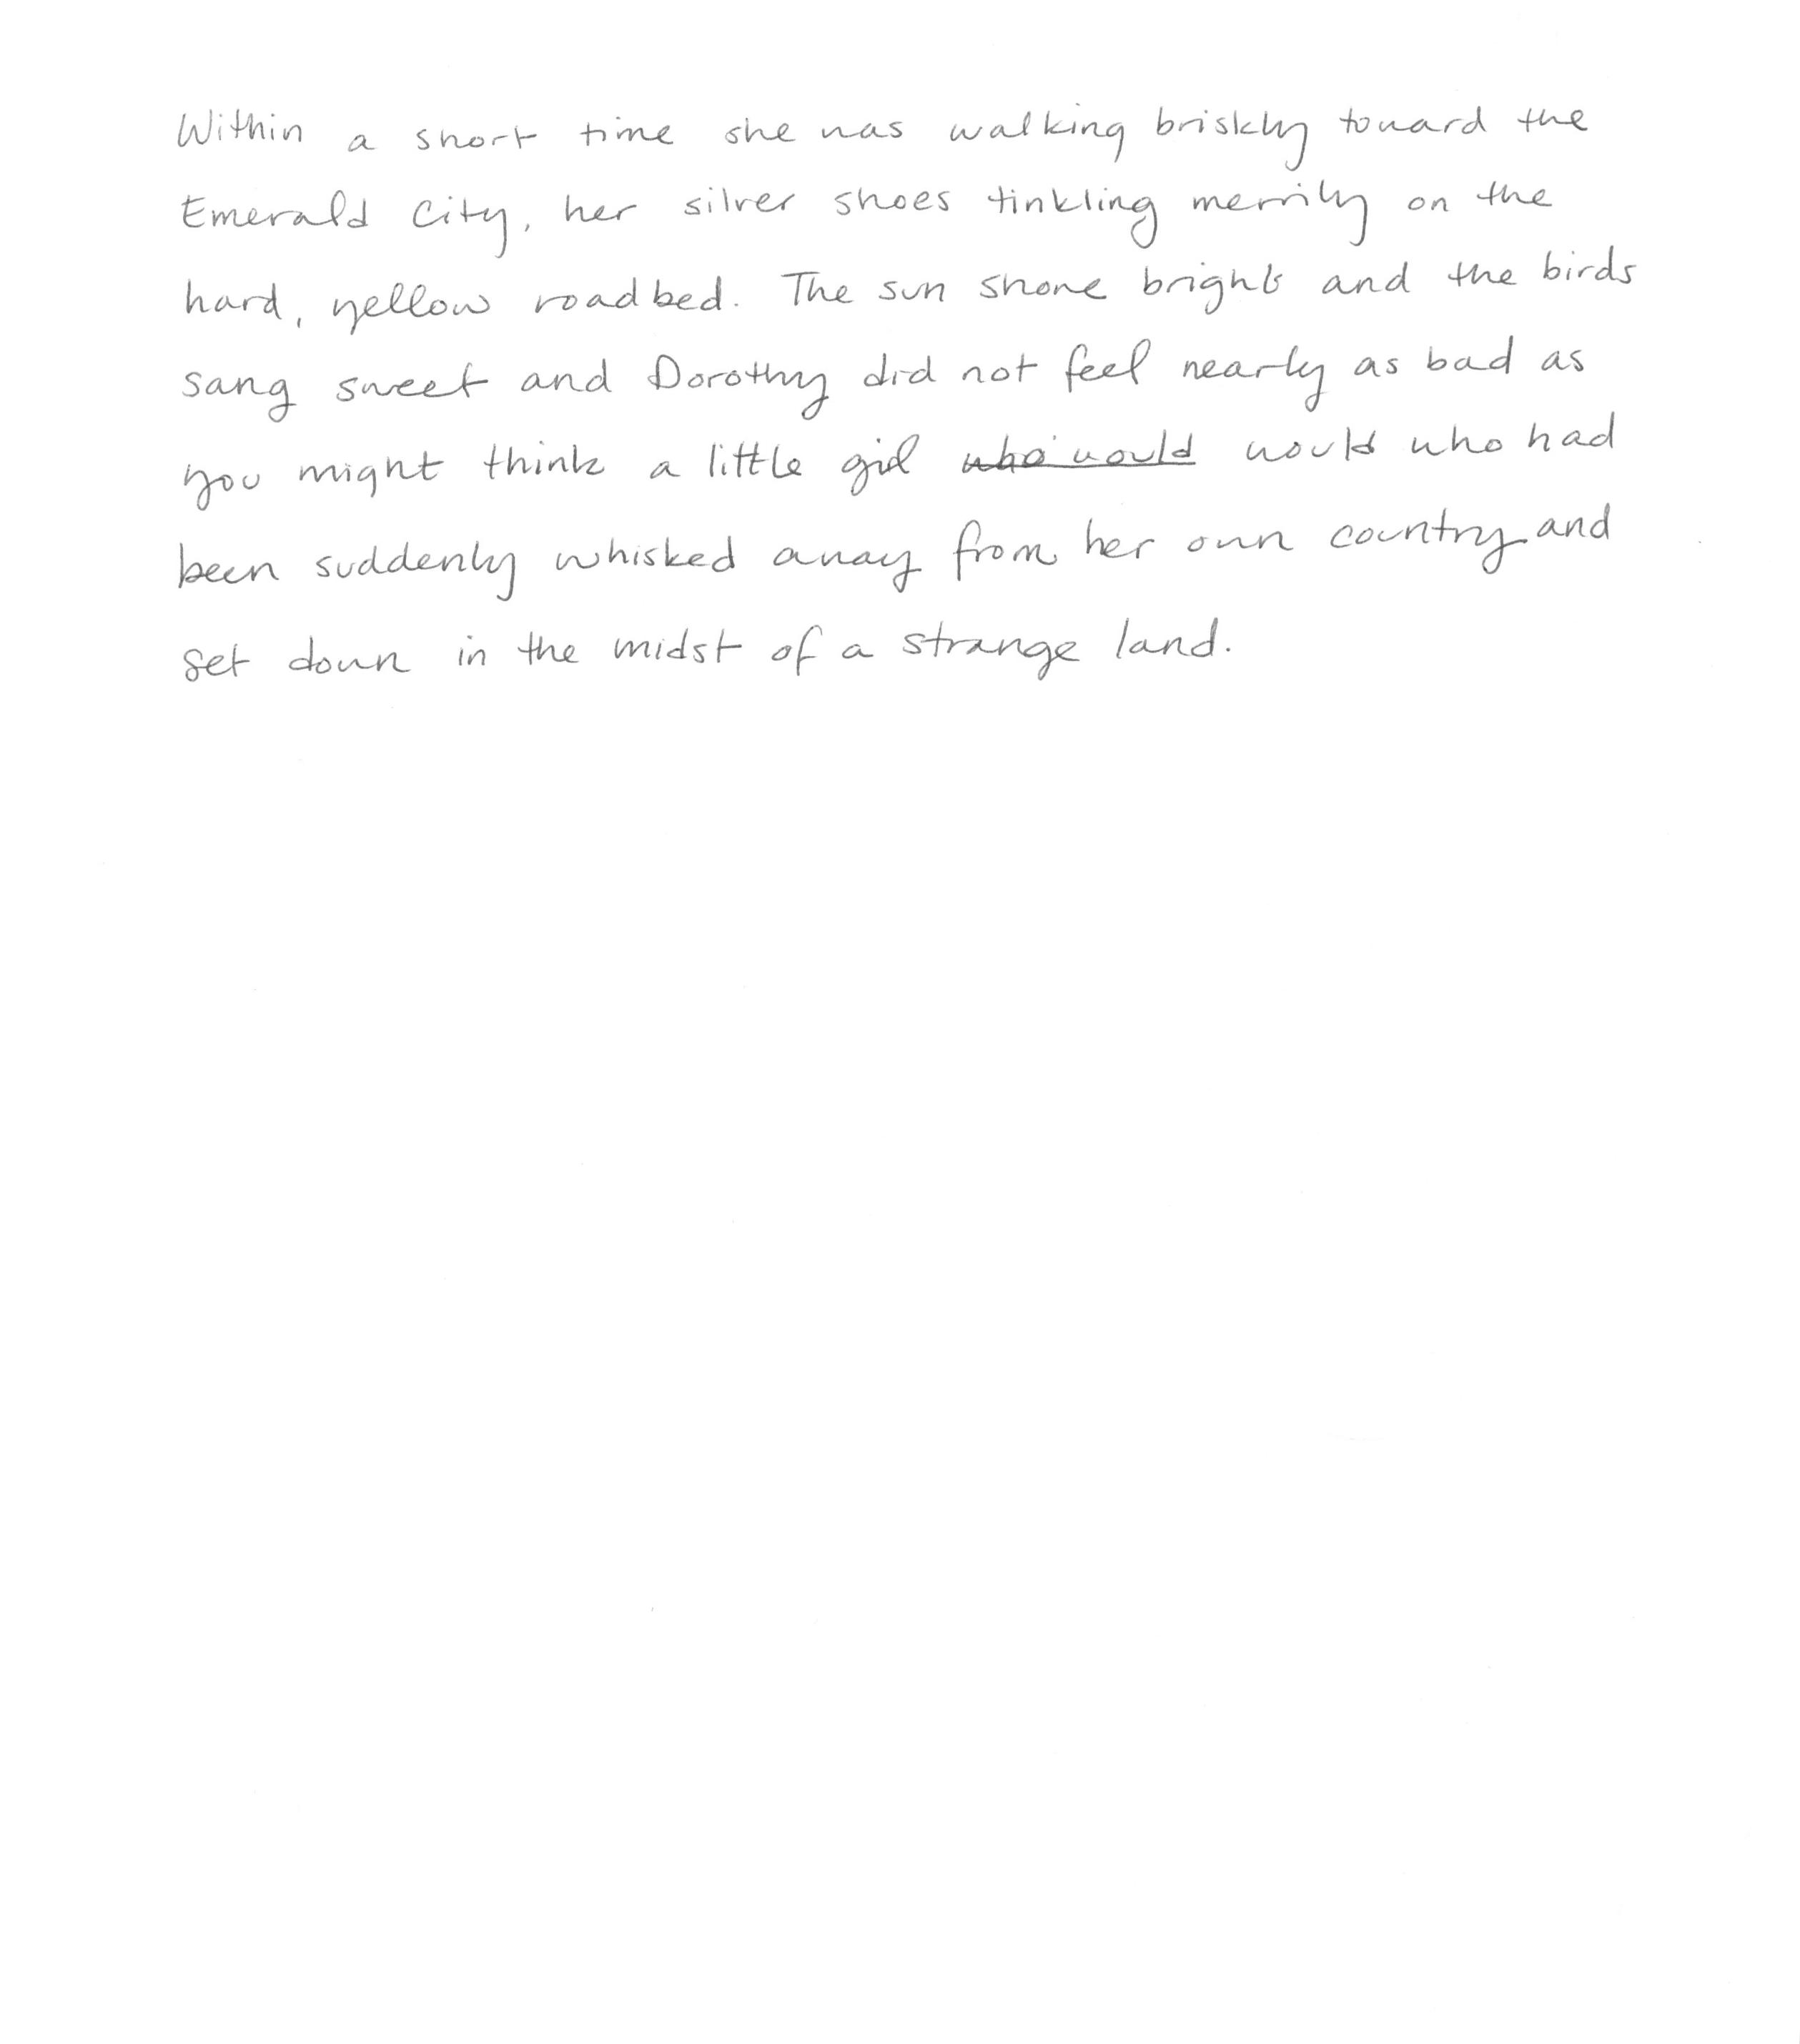 Within a short time she was walking briskly toward the
Emerald City, her silver shoes tinkling merrily on the
hard, yellow roadbed. The sun shone bright and the birds
sang sweet and Dorothy did not feel nearly as bad as
you might think a little girl ~~who would~~ would who had
been suddenly whisked away from her own country and
set down in the midst of a strange land.